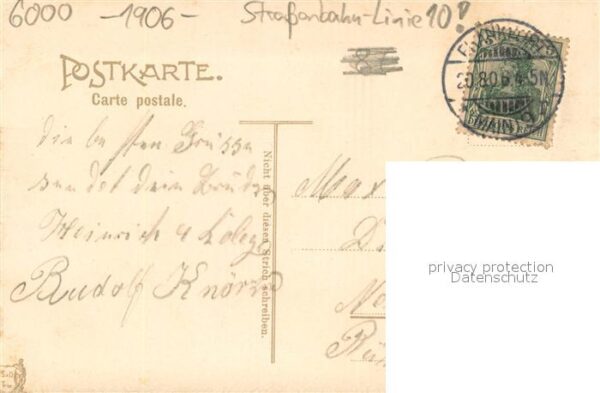 6000 -1906- Straßenbahn-Linie 10!
POSTKARTE.
Carte postale.
FRANKFURT
20.8.06.4-5N
(MAIN) 9
die besten Grüsse
sendet dein Bruder
Heinrich &
Rudolf
Nicht über diesen Strich schreiben.
privacy protection
Datenschutz